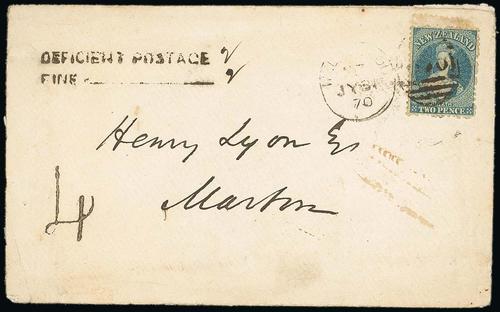 DEFICIENT POSTAGE 2
FINE 2
JY
70
NEW ZEALAND
TWO PENCE
Henry Lyon Es
Marton
4